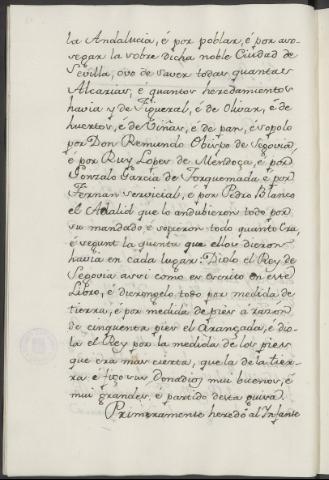 la Andalucia, é por poblar, é por aso-
segar la sobre dicha noble Ciudad de
Sevilla, ovo de saver todas quantas
Alcarias, é quantos heredamientos
havia y de Figueral, é de Olivar, é de
huertos, é de Viñas, é de pan, é sopolo
por Don Remundo Obispo de Segovia,
é por Ruy Lopez de Mendoça, é por
Gonzalo Garcia de Torquemada é por
Fernan Servicial, é por Pedro Blanco
el Adalid que lo andubieron todo por
su mandado é sopieron todo quanto era,
é segunt la quenta que ellos dieron
havia en cada lugar. Diolo el Rey de
Segovia assi como es escrito en este
Libro, é dierongelo todo por medida de
tierra, é por medida de pies á razón
de cinquenta pies el Aranzada, é dio-
la el Rey por la medida de los pies
que era mas cierta, que la de la tier-
ra é fizo sus Donadios mui buenos, é
mui grandes, é partido desta guisa.
Primeramente heredó al Infante